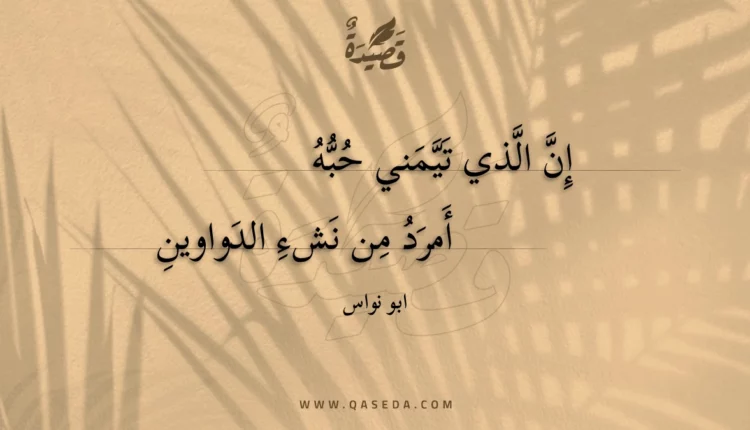 قَصِيدَةٌ
إِنَّ الَّذي تَيَّمَني حُبُّهُ
أَمرَدُ مِن نَشءِ الدَواوينِ
ابو نواس
WWW.QASEDA.COM